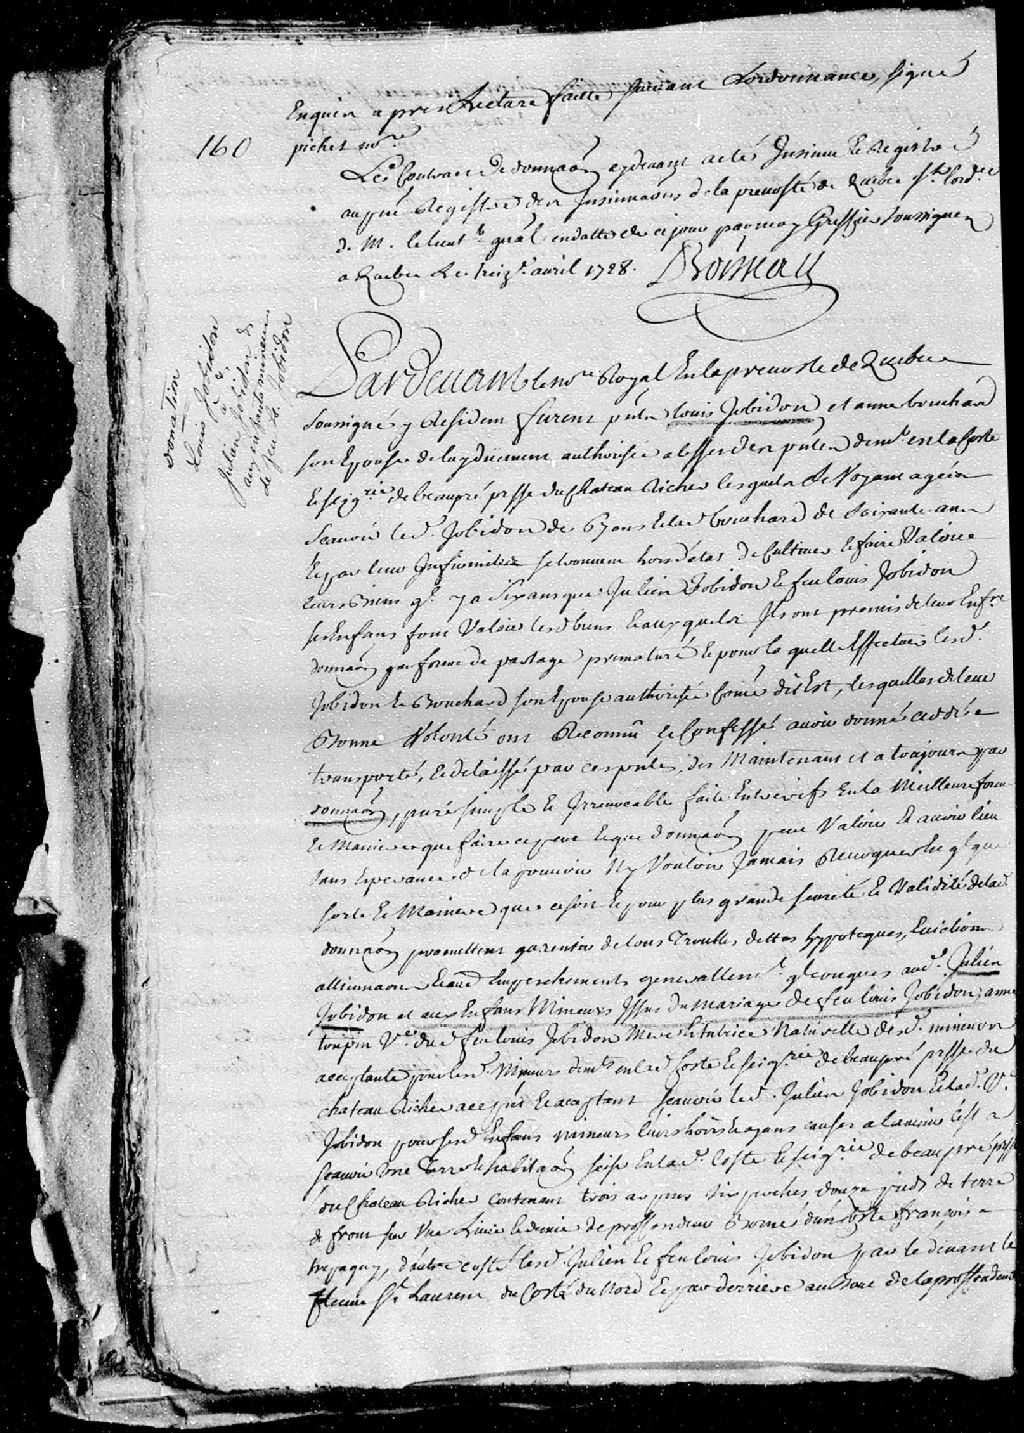 Enquis apres Lecture faitte suivant Lordonnance, signe
160
pichet nore
Le Contract de donnaon cy devant a esté Insinué & Registré
au gré Registre des Insinuaons de la prevosté de Quebec st lordce
de M. le lieut gnal en datte de ce jour par moy Greffier soussigné
a Quebec Le treize avril 1728. Boisseau
donation
Louis Jobidon
a
Julien Jobidon &
aux enfants mineurs
de feu Ls Jobidon
Pardevant le nore Royal En la prevosté de Quebec
soussigné y Resident furent pnts Louis Jobidon et anne bouchard
son Epouse de luy duement authorisée a leffet des pntes demt en la Coste
& seigrie de beaupré psse du Chateau Richer lesquels & Voyant agés
scavoir led. Jobidon de 67 ans & lad. bouchard de Soixante ans
& par leurs Infirmités se trouvent hors détat de Cultiver & faire Valoir
leurs Biens ql y a Six ans que Julien Jobidon & feu louis Jobidon
ses Enfans font Valoir lesd. biens & auxquels Ils ont promis de leur En fre
donnaon par forme de partage prematuré & pour la quelle Effectuer lesd.
Jobidon & Bouchard son Epouse authorisée Comé dit Est, lesquelles de leur
Bonne Volonté ont Reconnu & Confessé avoir donné ceddé
transporté, & delaissé par ces pntes, dés Maintenant et a toujours par
donnaon, pure simple & Irrevocable faite Entrevifs En la Meilleure forme
& Maniere que faire ce peut & que donnaon peut Valoir & avoir lieu
sans Esperance de la pouvoir Ny Vouloir Jamais Revoquer En ql que
sorte & Maniere que ce soit & pour plus grande seureté & Validité de lad.
donnaon promettent garentir de tous Troubles dettes hypoteques, Evictions
allienaons & aues Empeschements generallemt qlconques aud. Julien
Jobidon et aux Enfans Mineurs Issus du mariage de feu louis Jobidon, anne
toupin Ve dud feu louis Jobidon Mere & tutrice Naturelle desd. mineurs
acceptante pour lesd. Mineurs demts en lad Coste & seigrie de beaupré psse du
chateau Richer a ce pnt & acceptant Scavoir led. Julien Jobidon & lad. Ve
Jobidon pour sesd. Enfans mineurs leurs hoirs & ayans causes a lavenir C'est a
scavoir Une Terre & habitaon seise En lad. Coste & seigrie de beaupré psse
du Chateau Richer contenant trois arpens six perches douze pieds de terre
de front sur Une Lieue & demie de proffondeur Borné dun costé françois
, d'autre costé lesd. Julien & feu louis Jobidon par le devant le
fleuve St Laurent du Costé du Nord & par derriere au Bout de la proffondeur